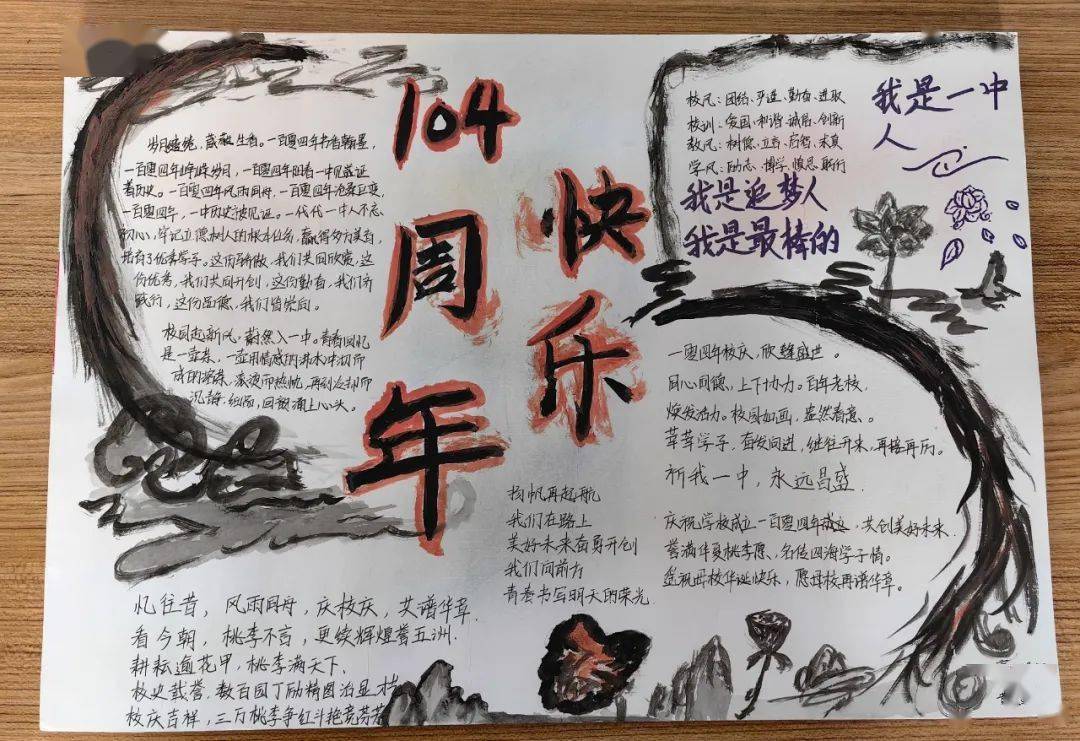 104
周
年
快
乐
岁月峥嵘，葳蕤生香。一百零四年书香翰墨，
一百零四年峥嵘岁月，一百零四年回看一中见证
着历史。一百零四年风雨同舟，一百零四年沧桑巨变，
一百零四年，一中历史被见证。一代代一中人不忘
初心，牢记立德树人的根本任务，赢得多方美誉，
培育了优秀学子。这份骄傲，我们共同欣赏，这
份优秀，我们共同开创，这份勤奋，我们齐
践行，这份品德，我们皆崇尚。
校园起新风，蔚然入一中。青春回忆
是一壶茶，一壶用情感的沸水冲沏而
成的
沉静，细品，回顾涌上心头。
忆往昔，风雨同舟，庆校庆，共谱华章
看今朝，桃李不言，更续辉煌誉五洲.
耕耘逾花甲，桃李满天下、
校史载誉，数百园丁励精图治显
校庆吉祥，三万桃李争红斗艳竞芬芳
扬帆再起航
我们在路上
美好未来奋勇开创
我们向前方
青春书写明天的荣光
校风：团结、严谨、勤奋、进取
校训：爱国、和谐、诚信、创新
教风：树德、立言、启智、求真
学风：励志、博学、慎思、敏行
我是一中
人
我是追梦人
我是最棒的
一零四年校庆，欣逢盛世。
同心同德，上下协力。百年老校，
焕发活力。校园如画，盎然春意。
莘莘学子，奋发向进，继往开来，再接再历。
祈我一中，永远昌盛
庆祝学校成立一百零四年成立，共创美好未来
誉满华夏桃李愿，名传四海学子情。
祝母校华诞快乐，愿母校再谱华章。